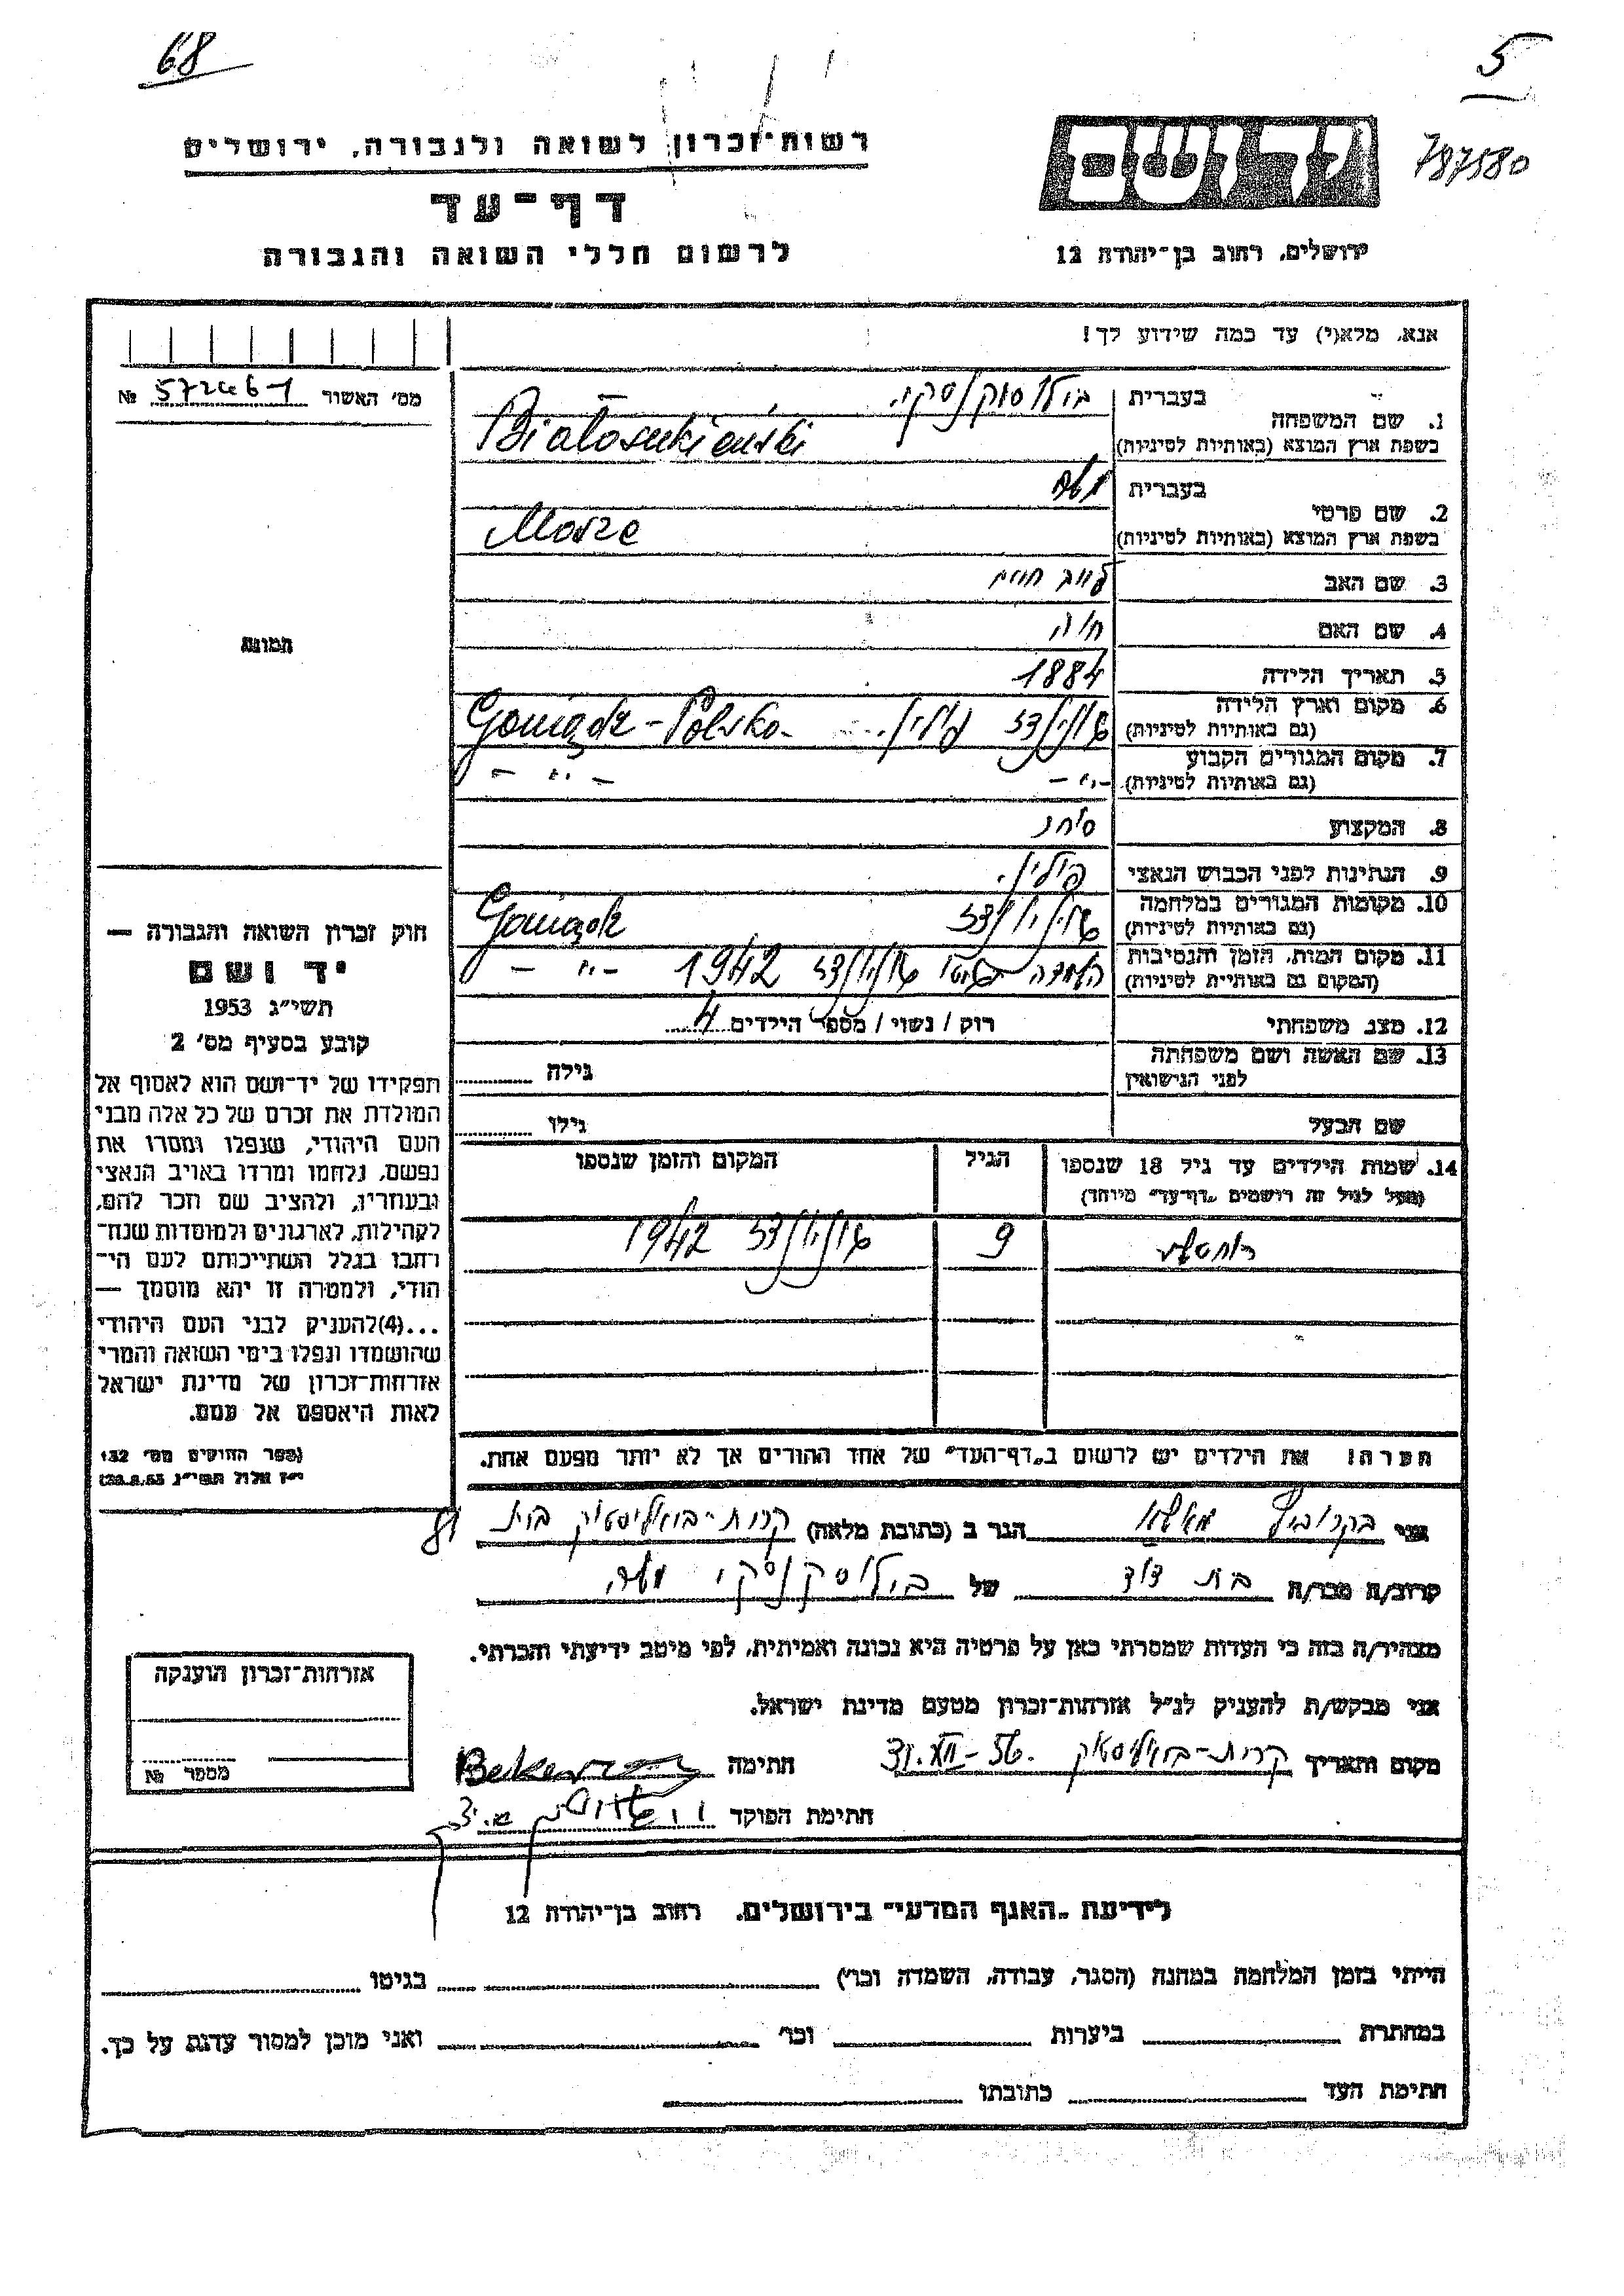 68
5
רשות-זכרון לשואה ולגבורה, ירושלים
יד ושם
787580
דף-עד
לרשום חללי השואה והגבורה
ירושלים, רחוב בן-יהודה 12
אנא, מלא(י) עד כמה שידוע לך!
מס' האשור № 572461
1. שם המשפחה
בעברית
Białosukieński
בשפת ארץ המוצא (באותיות לטיניות)
2. שם פרטי
בעברית משה
Mosze
בשפת ארץ המוצא (באותיות לטיניות)
3. שם האב חיים
4. שם האם חיה
5. תאריך הלידה 1884
6. מקום וארץ הלידה
(גם באותיות לטיניות) גוניונדז פולין Goniądz - Polska
7. מקום המגורים הקבוע
(גם באותיות לטיניות) -"- -"-
8. המקצוע סוחר
9. הנתינות לפני הכבוש הנאצי פולין.
10. מקומות המגורים במלחמה
(גם באותיות לטיניות) גוניונדז Goniądz
11. מקום המות, הזמן והנסיבות
(המקום גם באותיות לטיניות) גוניונדז 1942 -"-
12. מצב משפחתי רוק / נשוי / מספר הילדים 4
13. שם האשה ושם משפחתה
לפני הנישואין גילה
שם הבעל גילו
14. שמות הילדים עד גיל 18 שנספו הגיל המקום והזמן שנספו
(מעל לגיל זה רושמים "דף-עד" מיוחד)
9 גוניונדז 1942
הערה! את הילדים יש לרשום ב"דף-העד" של אחד ההורים אך לא יותר מפעם אחת.
תמונה
חוק זכרון השואה והגבורה —
יד ושם
תשי"ג 1953
קובע בסעיף מס' 2
תפקידו של יד-ושם הוא לאסוף אל
המולדת את זכרם של כל אלה מבני
העם היהודי, שנפלו ומסרו את
נפשם, נלחמו ומרדו באויב הנאצי
ובעוזריו, ולהציב שם וזכר להם,
לקהילות, לארגונים ולמוסדות שנח-
רבו בגלל השתייכותם לעם הי-
הודי, ולמטרה זו יהא מוסמך —
...(4) להעניק לבני העם היהודי
שהושמדו ונפלו בימי השואה והמרי
אזרחות-זכרון של מדינת ישראל
לאות היאספם אל עמם.
(ספר החוקים מס' 132
י"ז אלול תשי"ג 28.8.53)
אני בקרוביץ הגר ב (כתובת מלאה) קרית-ביאליסטוק בית 81
קרוב/ה מכר/ה בת דוד של משה
מצהיר/ה בזה כי העדות שמסרתי כאן על פרטיה היא נכונה ואמיתית, לפי מיטב ידיעתי והכרתי.
אני מבקש/ת להעניק לנ"ל אזרחות-זכרון מטעם מדינת ישראל.
מקום ותאריך קרית-ביאליסטוק חתימה
חתימת הפוקד
אזרחות-זכרון הוענקה
מספר №
לידיעת "האגף המדעי" בירושלים, רחוב בן-יהודה 12
הייתי בזמן המלחמה במחנה (הסגר, עבודה, השמדה וכו') בגיטו
במחתרת ביערות וכו' ואני מוכן למסור עדות על כך.
חתימת העד כתובתו